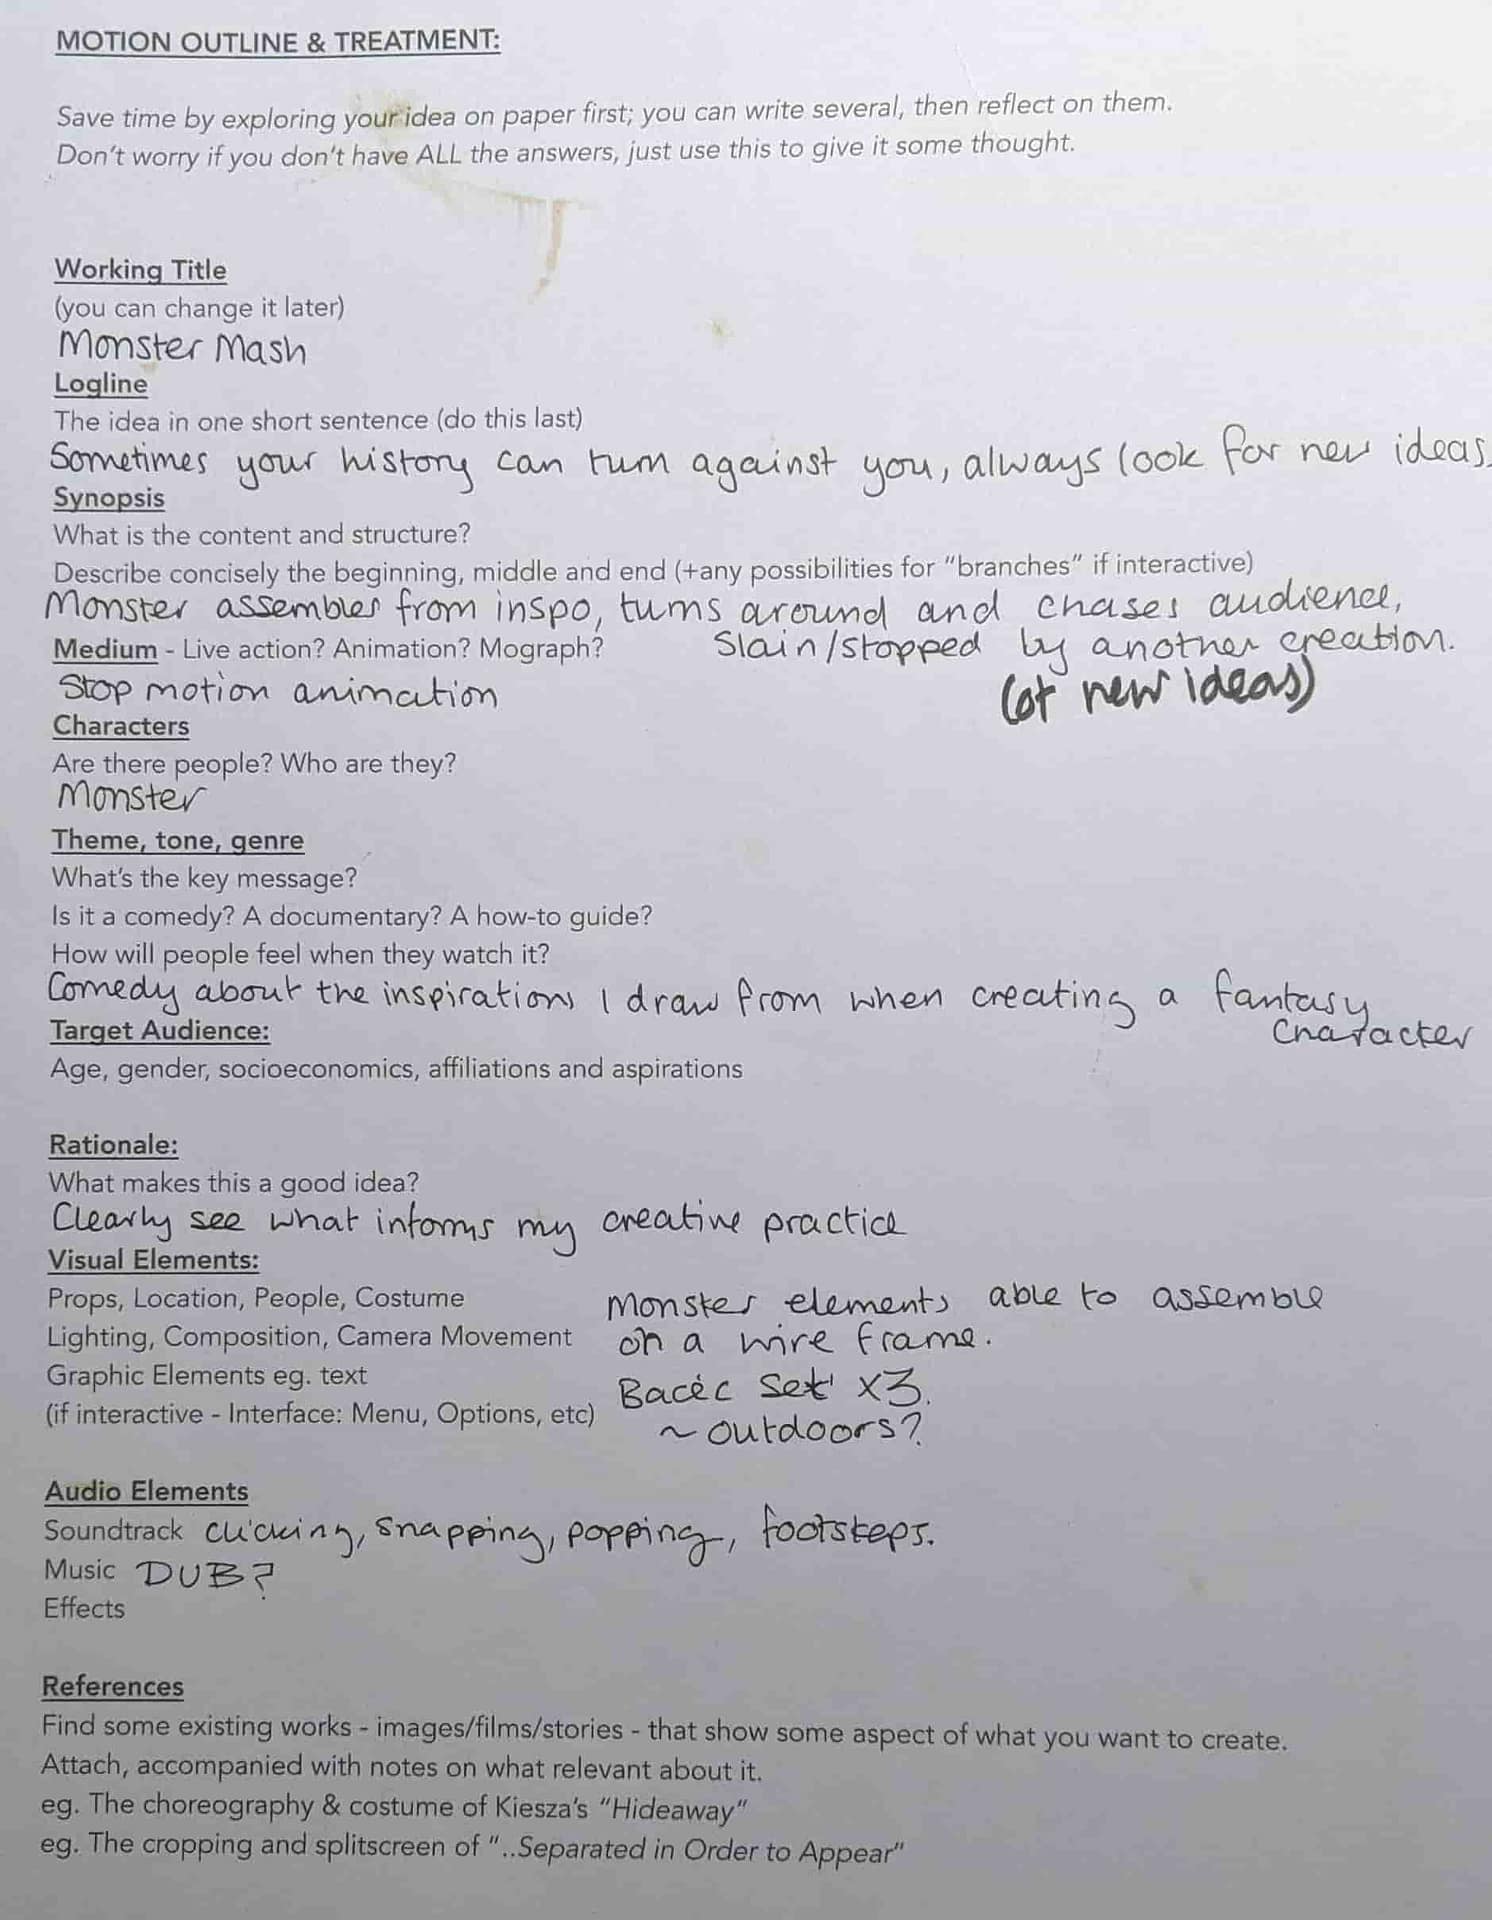 MOTION OUTLINE & TREATMENT:
Save time by exploring your idea on paper first; you can write several, then reflect on them.
Don't worry if you don't have ALL the answers, just use this to give it some thought.
Working Title
(you can change it later)
Monster Mash
Logline
The idea in one short sentence (do this last)
Sometimes your history can turn against you, always look for new ideas.
Synopsis
What is the content and structure?
Describe concisely the beginning, middle and end (+any possibilities for "branches" if interactive)
Monster assembles from inspo, turns around and chases audience,
Slain/stopped by another creation.
(of new ideas)
Medium - Live action? Animation? Mograph?
Stop motion animation
Characters
Are there people? Who are they?
Monster
Theme, tone, genre
What's the key message?
Is it a comedy? A documentary? A how-to guide?
How will people feel when they watch it?
Comedy about the inspirations I draw from when creating a fantasy
character
Target Audience:
Age, gender, socioeconomics, affiliations and aspirations
Rationale:
What makes this a good idea?
Clearly see what informs my creative practice
Visual Elements:
Props, Location, People, Costume
Lighting, Composition, Camera Movement
Graphic Elements eg. text
(if interactive - Interface: Menu, Options, etc)
Monster elements able to assemble
on a wire frame.
set x3.
~ outdoors?
Audio Elements
Soundtrack clicking, snapping, popping, footsteps.
Music DUB?
Effects
References
Find some existing works - images/films/stories - that show some aspect of what you want to create.
Attach, accompanied with notes on what relevant about it.
eg. The choreography & costume of Kiesza's "Hideaway"
eg. The cropping and splitscreen of "..Separated in Order to Appear"